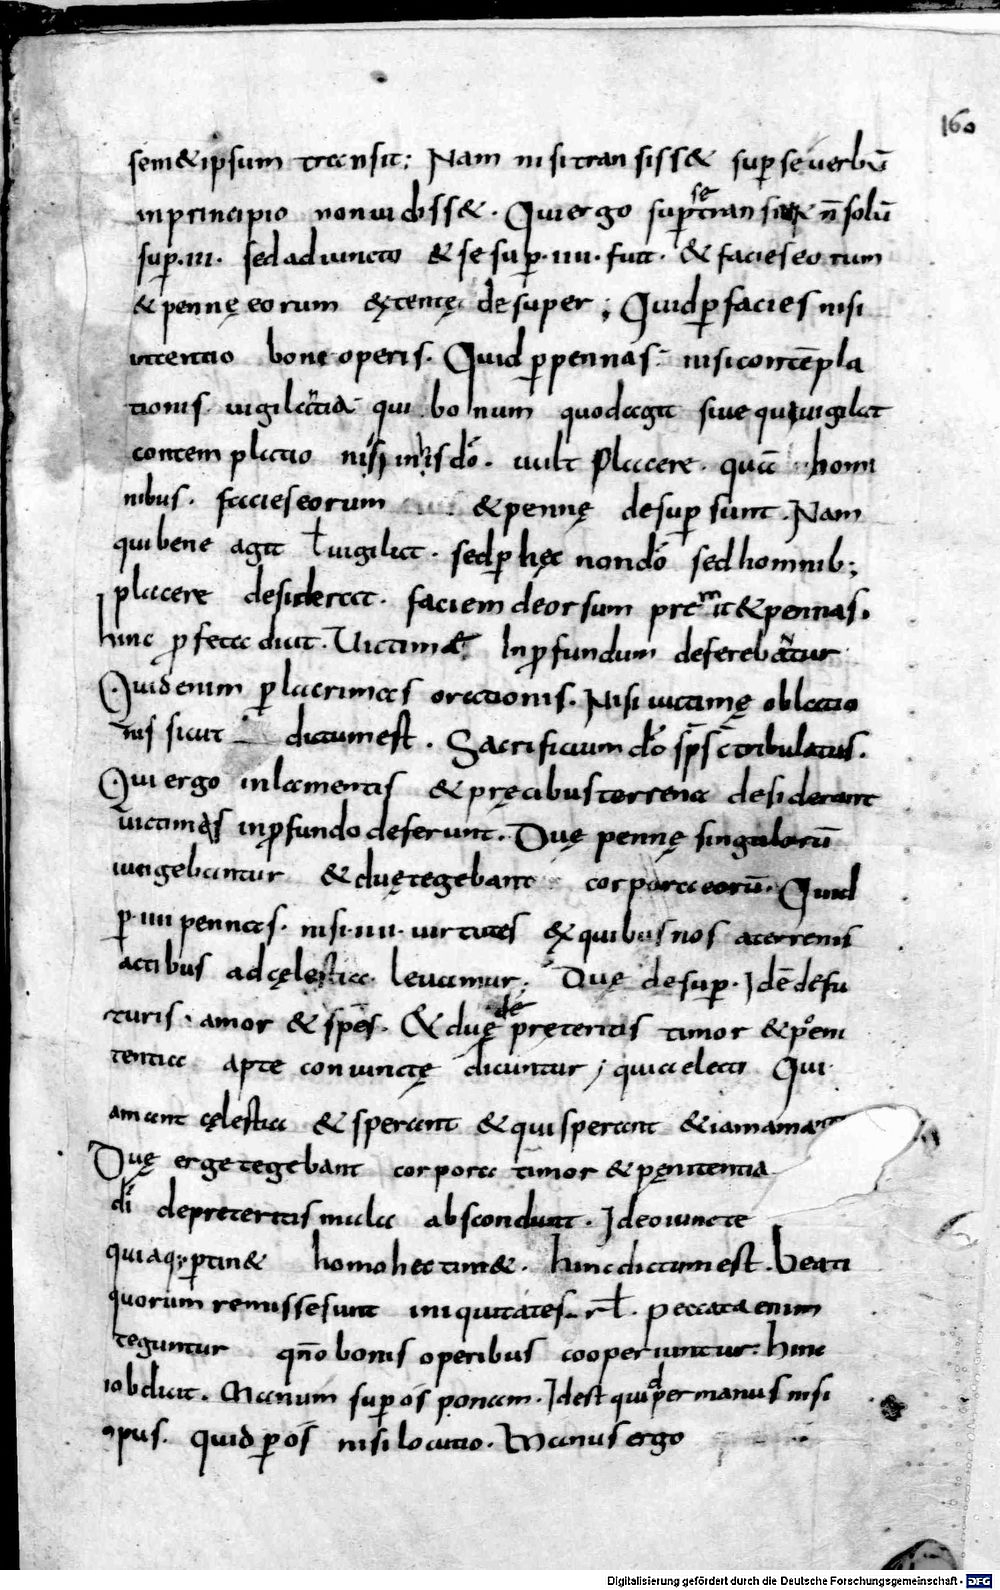 160
sem&ipsum transit; Nam nisitransiss& sup̄ se uerbū
inprincipio nonuidiss&. Qui ergo sup̄ se transit n̄ solū
sup̄ ·iii· sed adiuncto & se sup̄ ·iiii· fuit. & facies eorum
& pennę eorum &tentę desuper; Quid p̄ facies nisi
intentio boni operis. Quid p̄ pennas: nisi contēpla
tionis uigilantia qui bonum quod agit siue qui uigilat
contemplatio nisi do. uult placere. quā homi
nibus. facies eorum & pennę desup̄ sunt. Nam
qui bene agit ł uigilat. sed p̄ hęc non dō sed hominib;
placere desiderat. faciem deorsum premit & pennas.
hinc p̄feta dicit. Uictimae In p̄fundum deferebantur
Quid enim p̄ lacrimas orationis. Nisi uictimę oblatio
nis sicut dictum est. Sacrificium dō sp̄s c̄tribulatus.
Qui ergo in lamentis & pręcibus terrena desiderant
uictimas in p̄fundo deferunt. Duę pennę singulorū
iungebantur & duę tegebant corpora eorū. Quid
p̄ ·iiii· pennas. nisi ·iiii· uirtutes & quibus nos a terrenis
actibus ad cęlestia leuamur; Duę desup̄. Idē de fu
turis. amor & spēs. & duę de pręteritis timor & poeni
tentia apte coniunctę dicuntur; quia electi Qui
amant cęlestia & sperant & qui sperant & iam amant
Duę erge tegebant corpora timor & pęnitentia
di de preteritis mala abscondunt. Ideo iuncte
quia p̄tin& homo hec tim&. hinc dictum est. beati
quorum remisse sunt iniquitates. rł. peccata enim
teguntur qn̄o bonis operibus cooperiuntur: hinc
iob dicit. Manum sup̄ os ponam. Id est quid per manus nisi
opus. quid p̄ os nisi locutio. Manus ergo
Digitalisierung gefördert durch die Deutsche Forschungsgemeinschaft - DFG